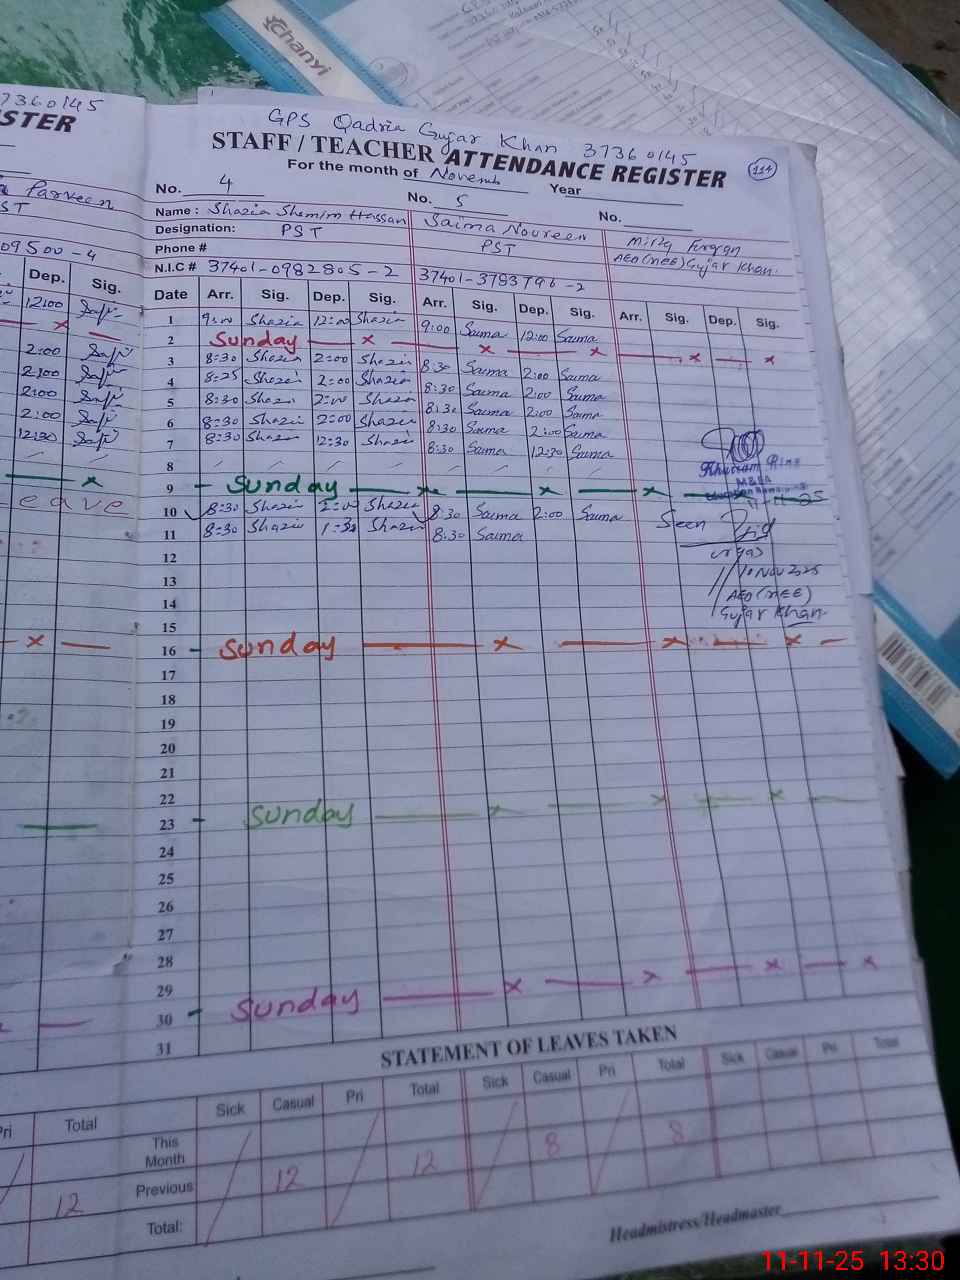 chanyi
37360145
GPS Qadria Gujar Khan 37360145
STAFF / TEACHER ATTENDANCE REGISTER
114
For the month of Novemb Year
No. 4 No. 5 No.
Name : Shazia Shemim Hassan Saima Noureen
Designation: PST PST AEO(MEE) Gujar Khan.
Phone #
N.I.C # 37401-0982805-2 37401-3783796-2
Date Arr. Sig. Dep. Sig. Arr. Sig. Dep. Sig. Arr. Sig. Dep. Sig.
1 9:00 Shazia 12:00 Shazia 9:00 Saima 12:00 Saima
2 Sunday — x — x — x — x — x
3 8:30 Shazia 2:00 Shazia 8:30 Saima 2:00 Saima
4 8:25 Shazia 2:00 Shazia 8:30 Saima 2:00 Saima
5 8:30 Shazia 2:00 Shazia 8:30 Saima 2:00 Saima
6 8:30 Shazia 2:00 Shazia 8:30 Saima 2:00 Saima
7 8:30 Shazia 12:30 Shazia 8:30 Saima 12:30 Saima
8
9 - Sunday — x — x — x
10 8:30 Shazia 2:00 Shazia 8:30 Saima 2:00 Saima Seen
11 8:30 Shazia 1:30 Shazia 8:30 Saima
12
13 10 Nov 2025
14 AEO(MEE)
Gujar Khan
15
16 - Sunday — x — x — x —
17
18
19
20
21
22
23 - Sunday — x — x — x —
24
25
26
27
28
29
30 - Sunday — x — x — x — x
31
STATEMENT OF LEAVES TAKEN
Sick Casual Pri Total Sick Casual Pri Total Sick Casual Pri Total
This Month
Previous 12 12 8 8
Total:
Headmistress/Headmaster
STER
Parveen
ST
09500-4
Dep. Sig.
12:00
x
2:00
2:00
2:00
2:00
12:30
x
eave
x
Pri Total
12
11-11-25 13:30